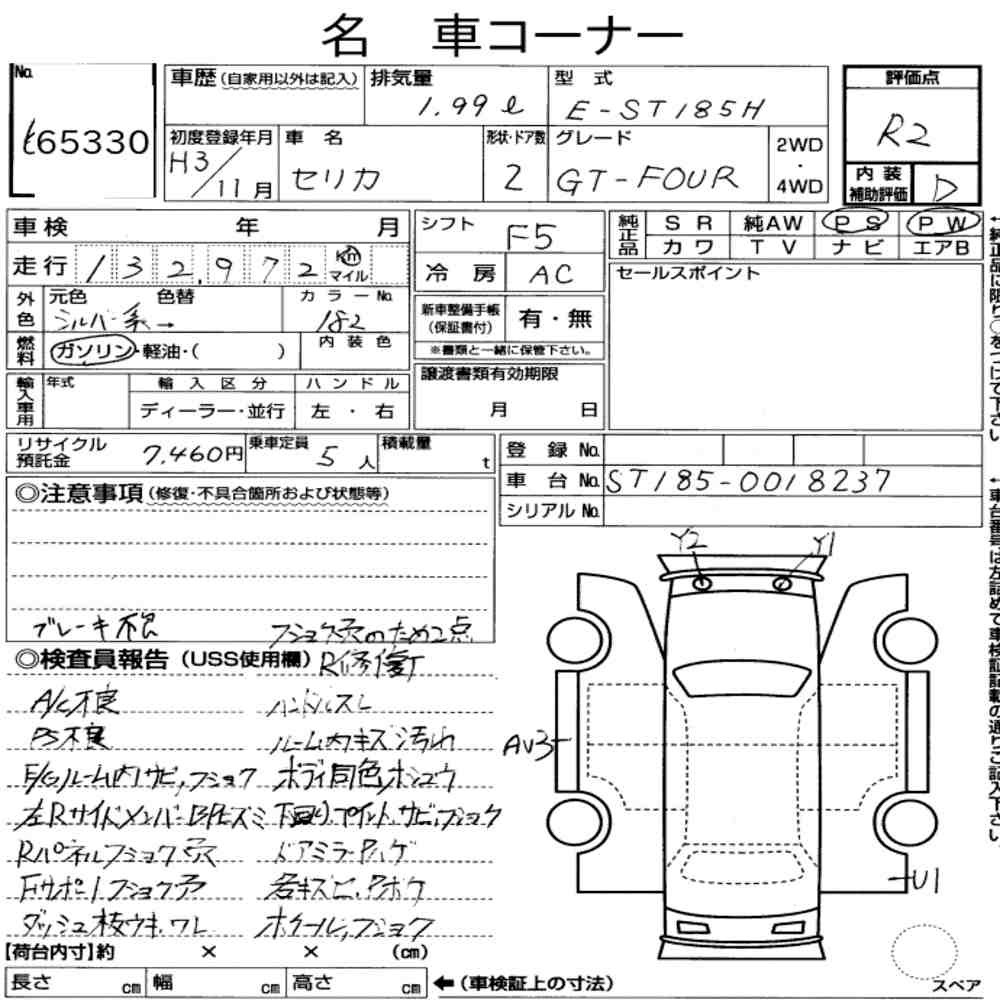 名 車コーナー
No.
65330
車歴(自家用以外は記入)
排気量
1.99ℓ
型式
E-ST185H
評価点
R2
初度登録年月
H3/11月
車名
セリカ
形状・ドア数
2
グレード
GT-FOUR
2WD
・
4WD
内装
補助評価
D
車検 年 月
シフト
F5
純正品
SR 純AW PS PW
カワ TV ナビ エアB
走行 132,972 Km マイル
冷房 AC
セールスポイント
外色
元色 色替
シルバー系→
カラーNo.
182
新車整備手帳
(保証書付)
有・無
※書類と一緒に保管下さい。
燃料
ガソリン・軽油・( )
内装色
輸入車用
年式
輸入区分
ハンドル
ディーラー・並行
左・右
譲渡書類有効期限
月 日
リサイクル
預託金
7,460円
乗車定員
5人
積載量
t
登録No.
車台No. ST185-0018237
シリアルNo.
◎注意事項(修復・不具合箇所および状態等)
ブレーキ不良
フショク予のため2点
◎検査員報告(USS使用欄)
R修復有
A/C不良
ハンドルスレ
PS不良
ルーム内キズ汚れ
F/Cルーム内サビ,フショク
ボディ同色ホシュウ
左Rサイドメンバー部ヒズミ
下回り,プイント,サビ,フショク
Rパネルフショク予
ドアミラーPハゲ
Fサポートフショク予
ダッシュ板ウキ,ワレ
【荷台内寸】約 × × (cm)
長さ cm 幅 cm 高さ cm ←(車検証上の寸法)
Y2
Y1
U1
スペア
←純正品に限り○をつけて下さい。
←車台番号は左詰めで車検証記載の通りご記入下さい。